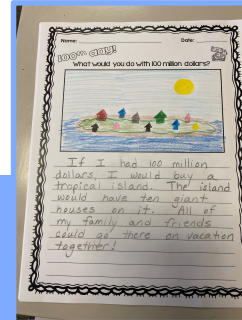 Name:
Date:
100th day!
What would you do with 100 million dollars?
If I had 100 million
dollars, I would buy a
tropical island. The island
would have ten giant
houses on it. All of
my family and friends
could go there on vacation
together!